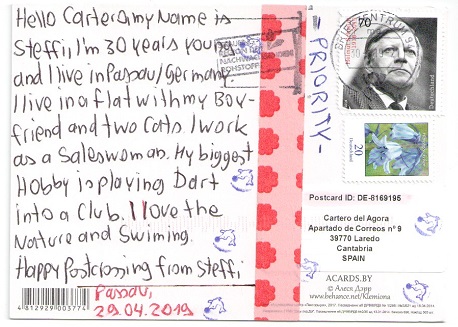 Hello Carter&my Name is
Steffi, I'm 30 years young
and I live in Passau/Germany
I live in a flat with my Boy-
friend and two Cats. I work
as a Saleswoman. My biggest
Hobby is playing Dart
into a Club. I love the
Nature and Swiming.
Happy Postcrossing from Steffi
Passau,
29.04.2019
4 812929 003774
-PRIORITY-
BRIEFZENTRUM
70
Deutschland
20
Deutschland
Postcard ID: DE-8169195
Cartero del Agora
Apartado de Correos nº 9
39770 Laredo
Cantabria
SPAIN
ACARDS.BY
© Алеся Дэрр
www.behance.net/Klemiona